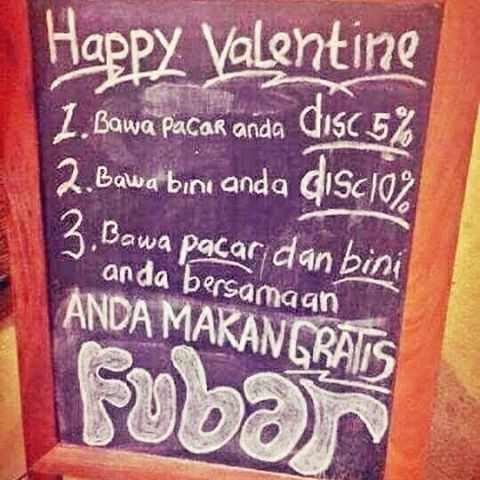 Happy Valentine
1. Bawa pacar anda disc 5%
2. Bawa bini anda disc 10%
3. Bawa pacar, dan bini
anda bersamaan
ANDA MAKAN GRATIS
Fubar